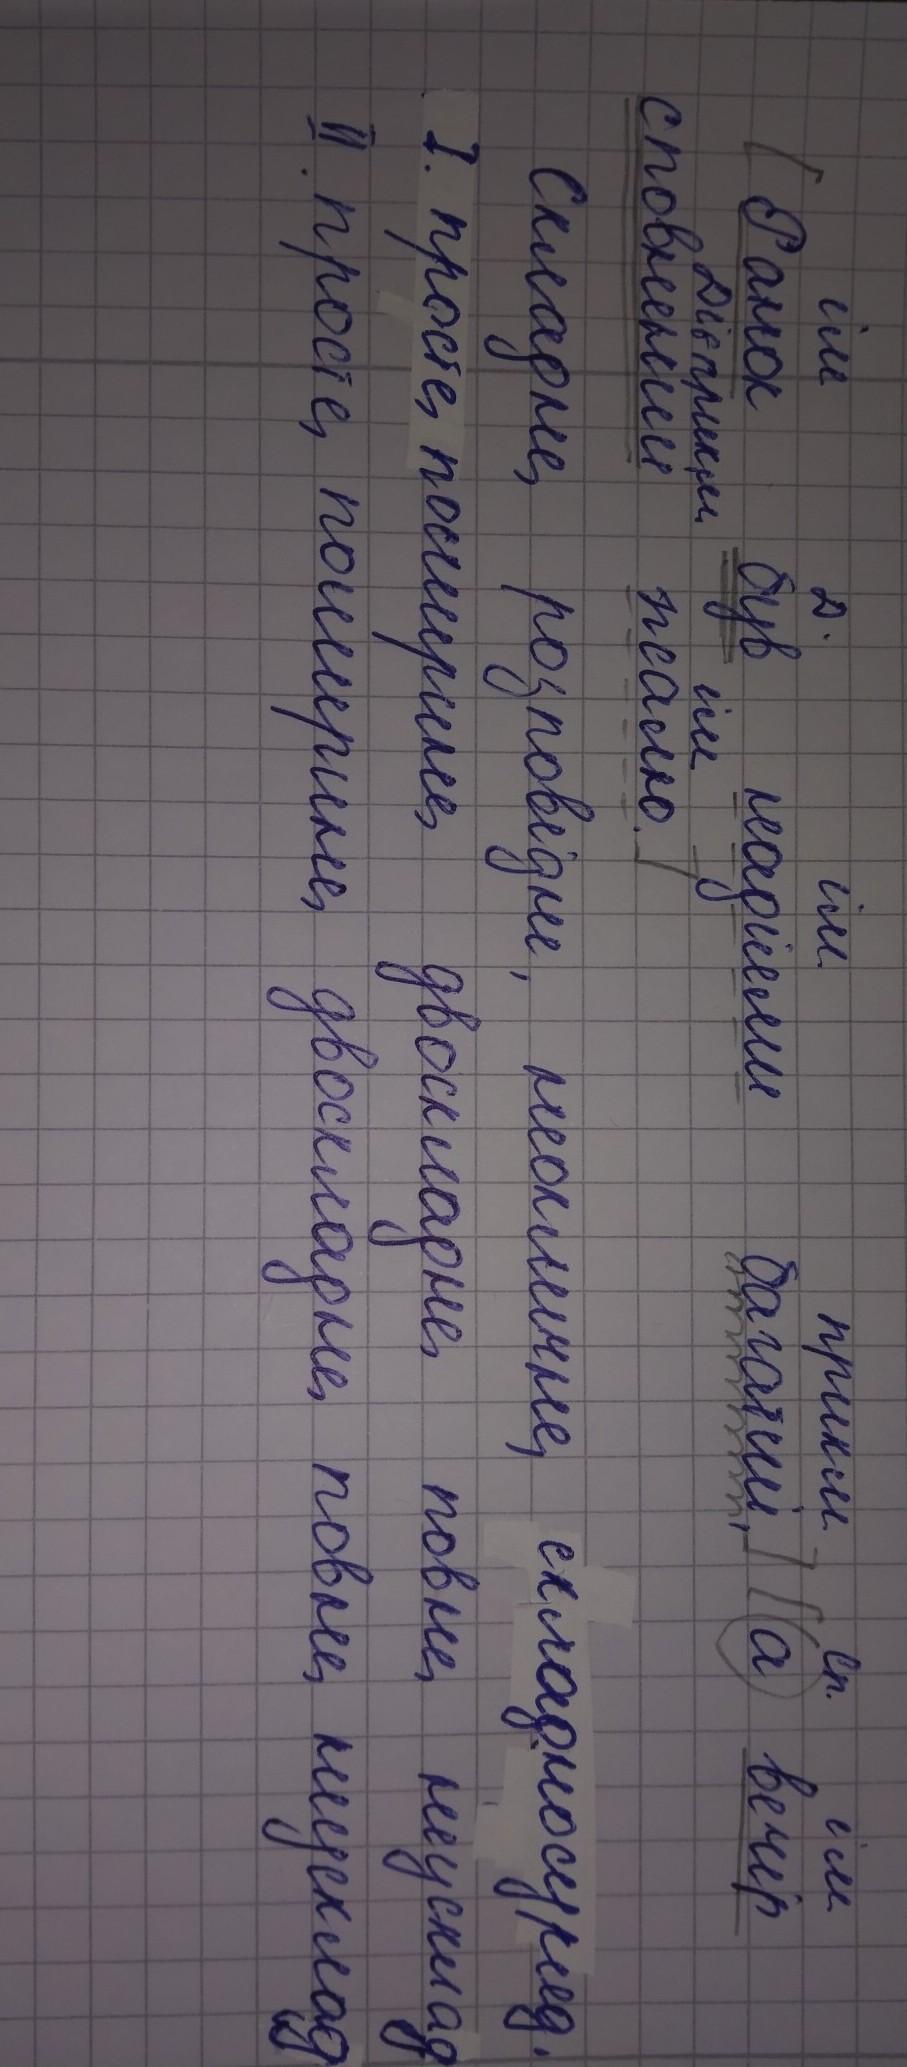 ім Д. ім. прикм. Сп. ім
[Ранок був надіями багатий,] [а вечір
Дієприкм. ім.
сповнений псално.]
Складне, розповідне, неокличне, складносуряд.
I. просте, поширене, двоскладне, повне, неусклад
II. просте, поширене, двоскладне, повне, неусклад